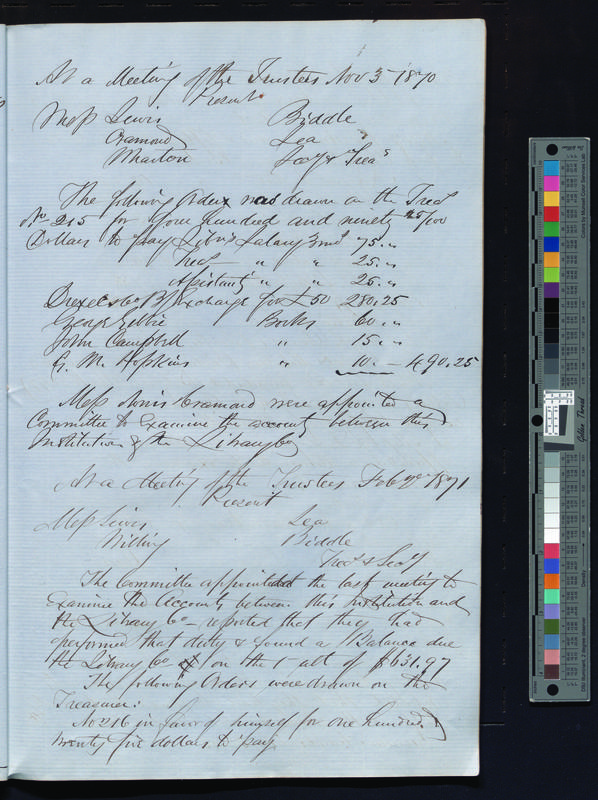 At a Meeting of the Trustees Nov 3d 1870
Present
Mess Lewis Biddle
Cramond Lea
Wharton Secy & Treas
The following Orders was drawn on the Treas
No 215 for four hundred and ninety 25/100
Dollars to pay Libns Salary 3 mos 75. "
Treas " " 25. "
Assistants " " 25. "
Drexel & Co Bf Exchange for £50 280.25
George Gebbie Books 60 . "
John Campbell " 15. "
G. M. Hopkins " 10. — 490.25
Mess Norris & Cramond were appointed a
Committee to Examine the accounts between this
Institution & the Library Co
At a Meeting of the Trustees Feb 2d 1871
Present
Mess Lewis Lea
Willing Biddle
Treas & Secy
The Committee appointed at the last meeting to
Examine the Accounts between this institution and
the Library Co — reported that they had
performed that duty & found a Balance due
the Library Co on the 1 ult of $631.97
The following Orders were drawn on the
Treasurer:
No 216 in favor of himself for one hundred &
twenty five dollars to pay